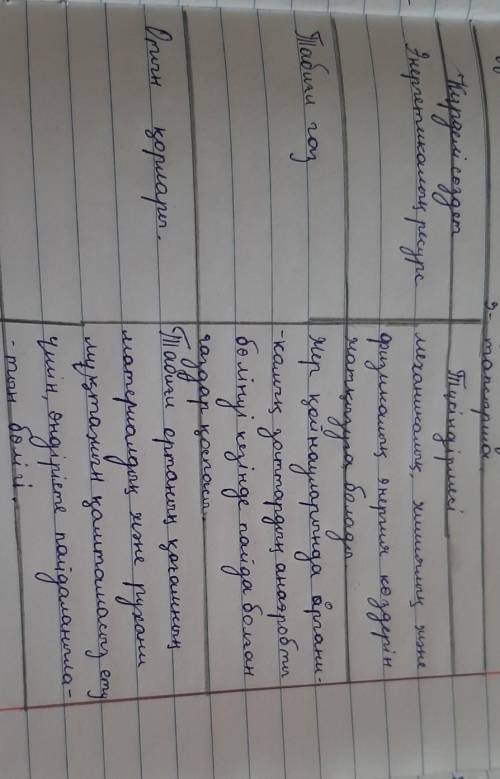 3-тапсырма.
Күрделі сөздер
Түсіндірмесі
Энергетикалық ресурс
механикалық, химиялық және
физикалық энергия көздерін
жатқызуға болады.
Табиғи газ
жер қойнауларында органи-
-калық заттардың анаэробты
бөлінуі кезінде пайда болған
газдар қоспасы.
қорлары.
Табиғи ортаның қоғамның
материалдық және рухани
мұқтажын қамтамасыз ету
үшін, өндірісте пайдаланыла-
-тын бөлігі.